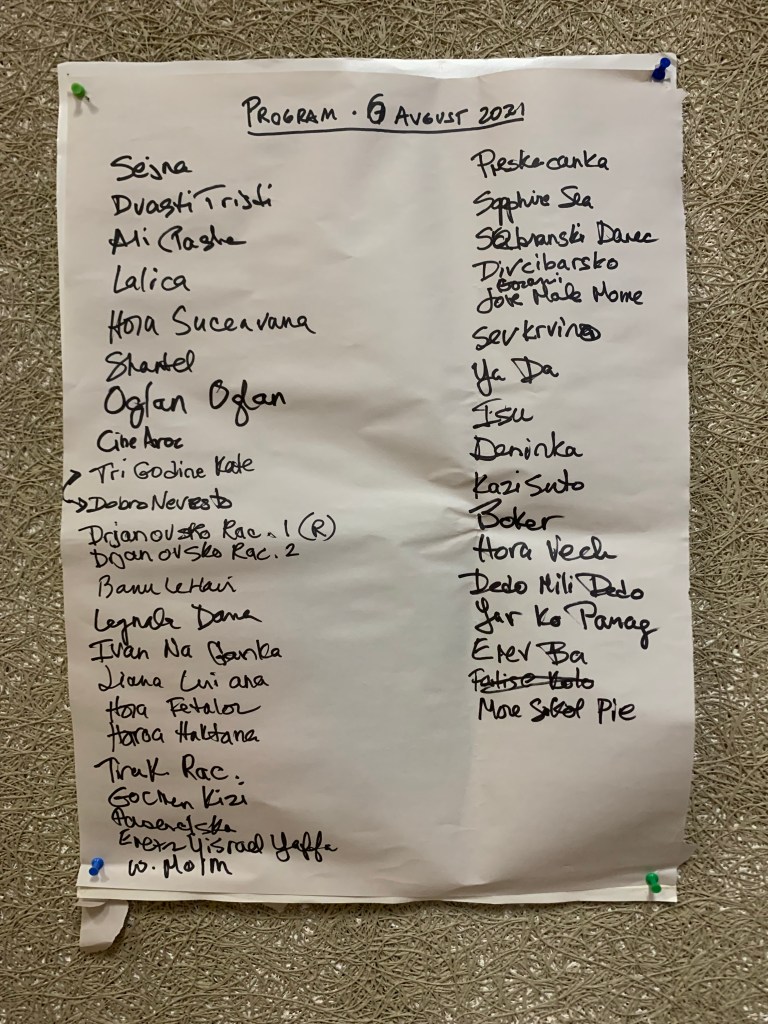 PROGRAM · 6 AUGUST 2021
Sejna
Dvasti Tristi
Ali Pashe
Lalica
Hora Suceavana
Shantel
Oglan Oglan
Cine Aroc
Tri Godine Kate
Dobro Nevesto
Drjanovsko Rac. 1 (R)
Drjanovsko Rac. 2
Banu LeHair
Legnala Dana
Ivan Na Ganka
Liana Luiana
Hora Fetelor
Horoa Haktana
Tirak Rac.
Gochen Kizi
Eretz Yisrael Yaffa
W. Mo/M
Pieskacanka
Sapphire Sea
Danec
Divcibarsko
Jove Male Mome
Sevkrvino
Ya Da
Isu
Deninka
Kazi Suto
Boker
Hora Vech
Dedo Mili Dedo
Yar Ko Parag
Erev Ba
Kolo
More Sokol Pie